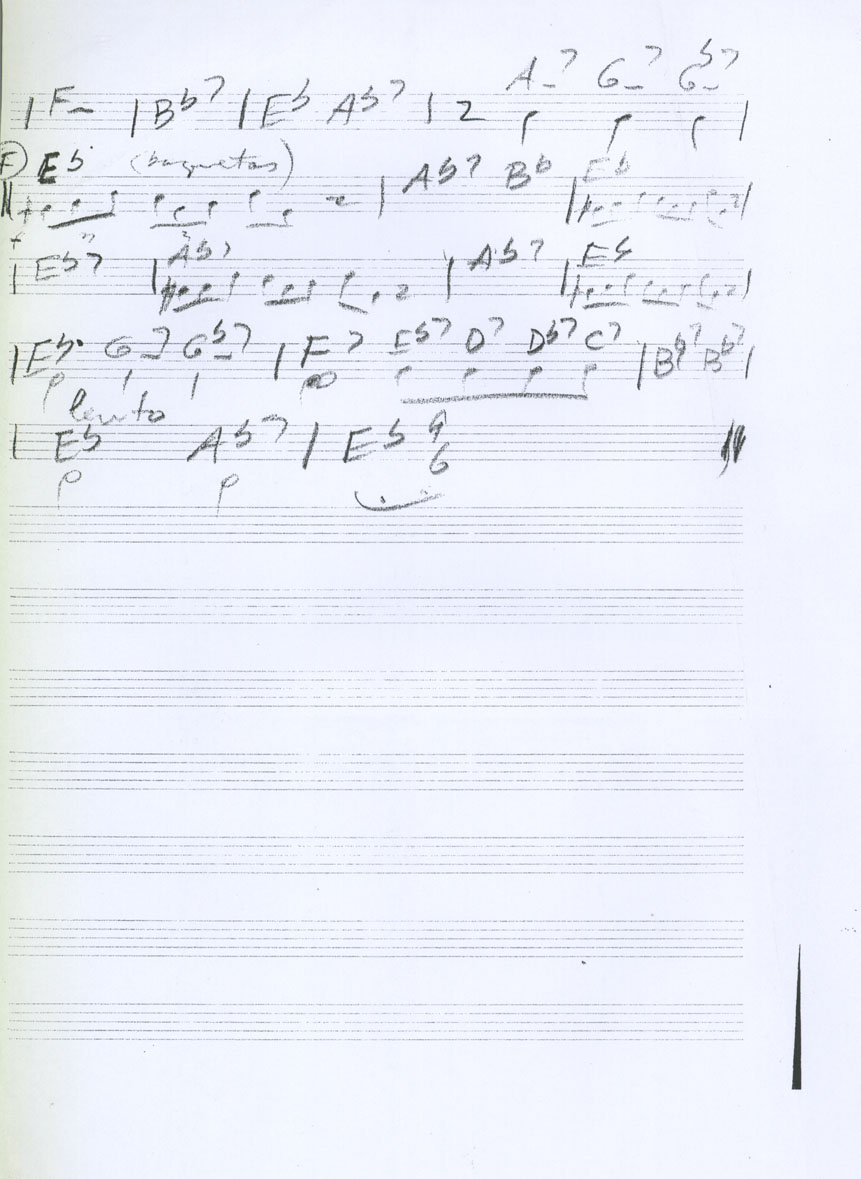 | F– | B♭7 | E♭ A♭7 | 2 A–7 G–7 G♭–7 |
F E♭ (baquetas) | A♭7 B♭ | E♭ |
| E♭7 | A♭7 | A♭7 | E♭ |
| E♭ G–7 G♭–7 | F7 E♭7 D7 D♭7 C7 | B♭7 B♭7 |
lento
| E♭ A♭7 | E♭ 9 6 ||